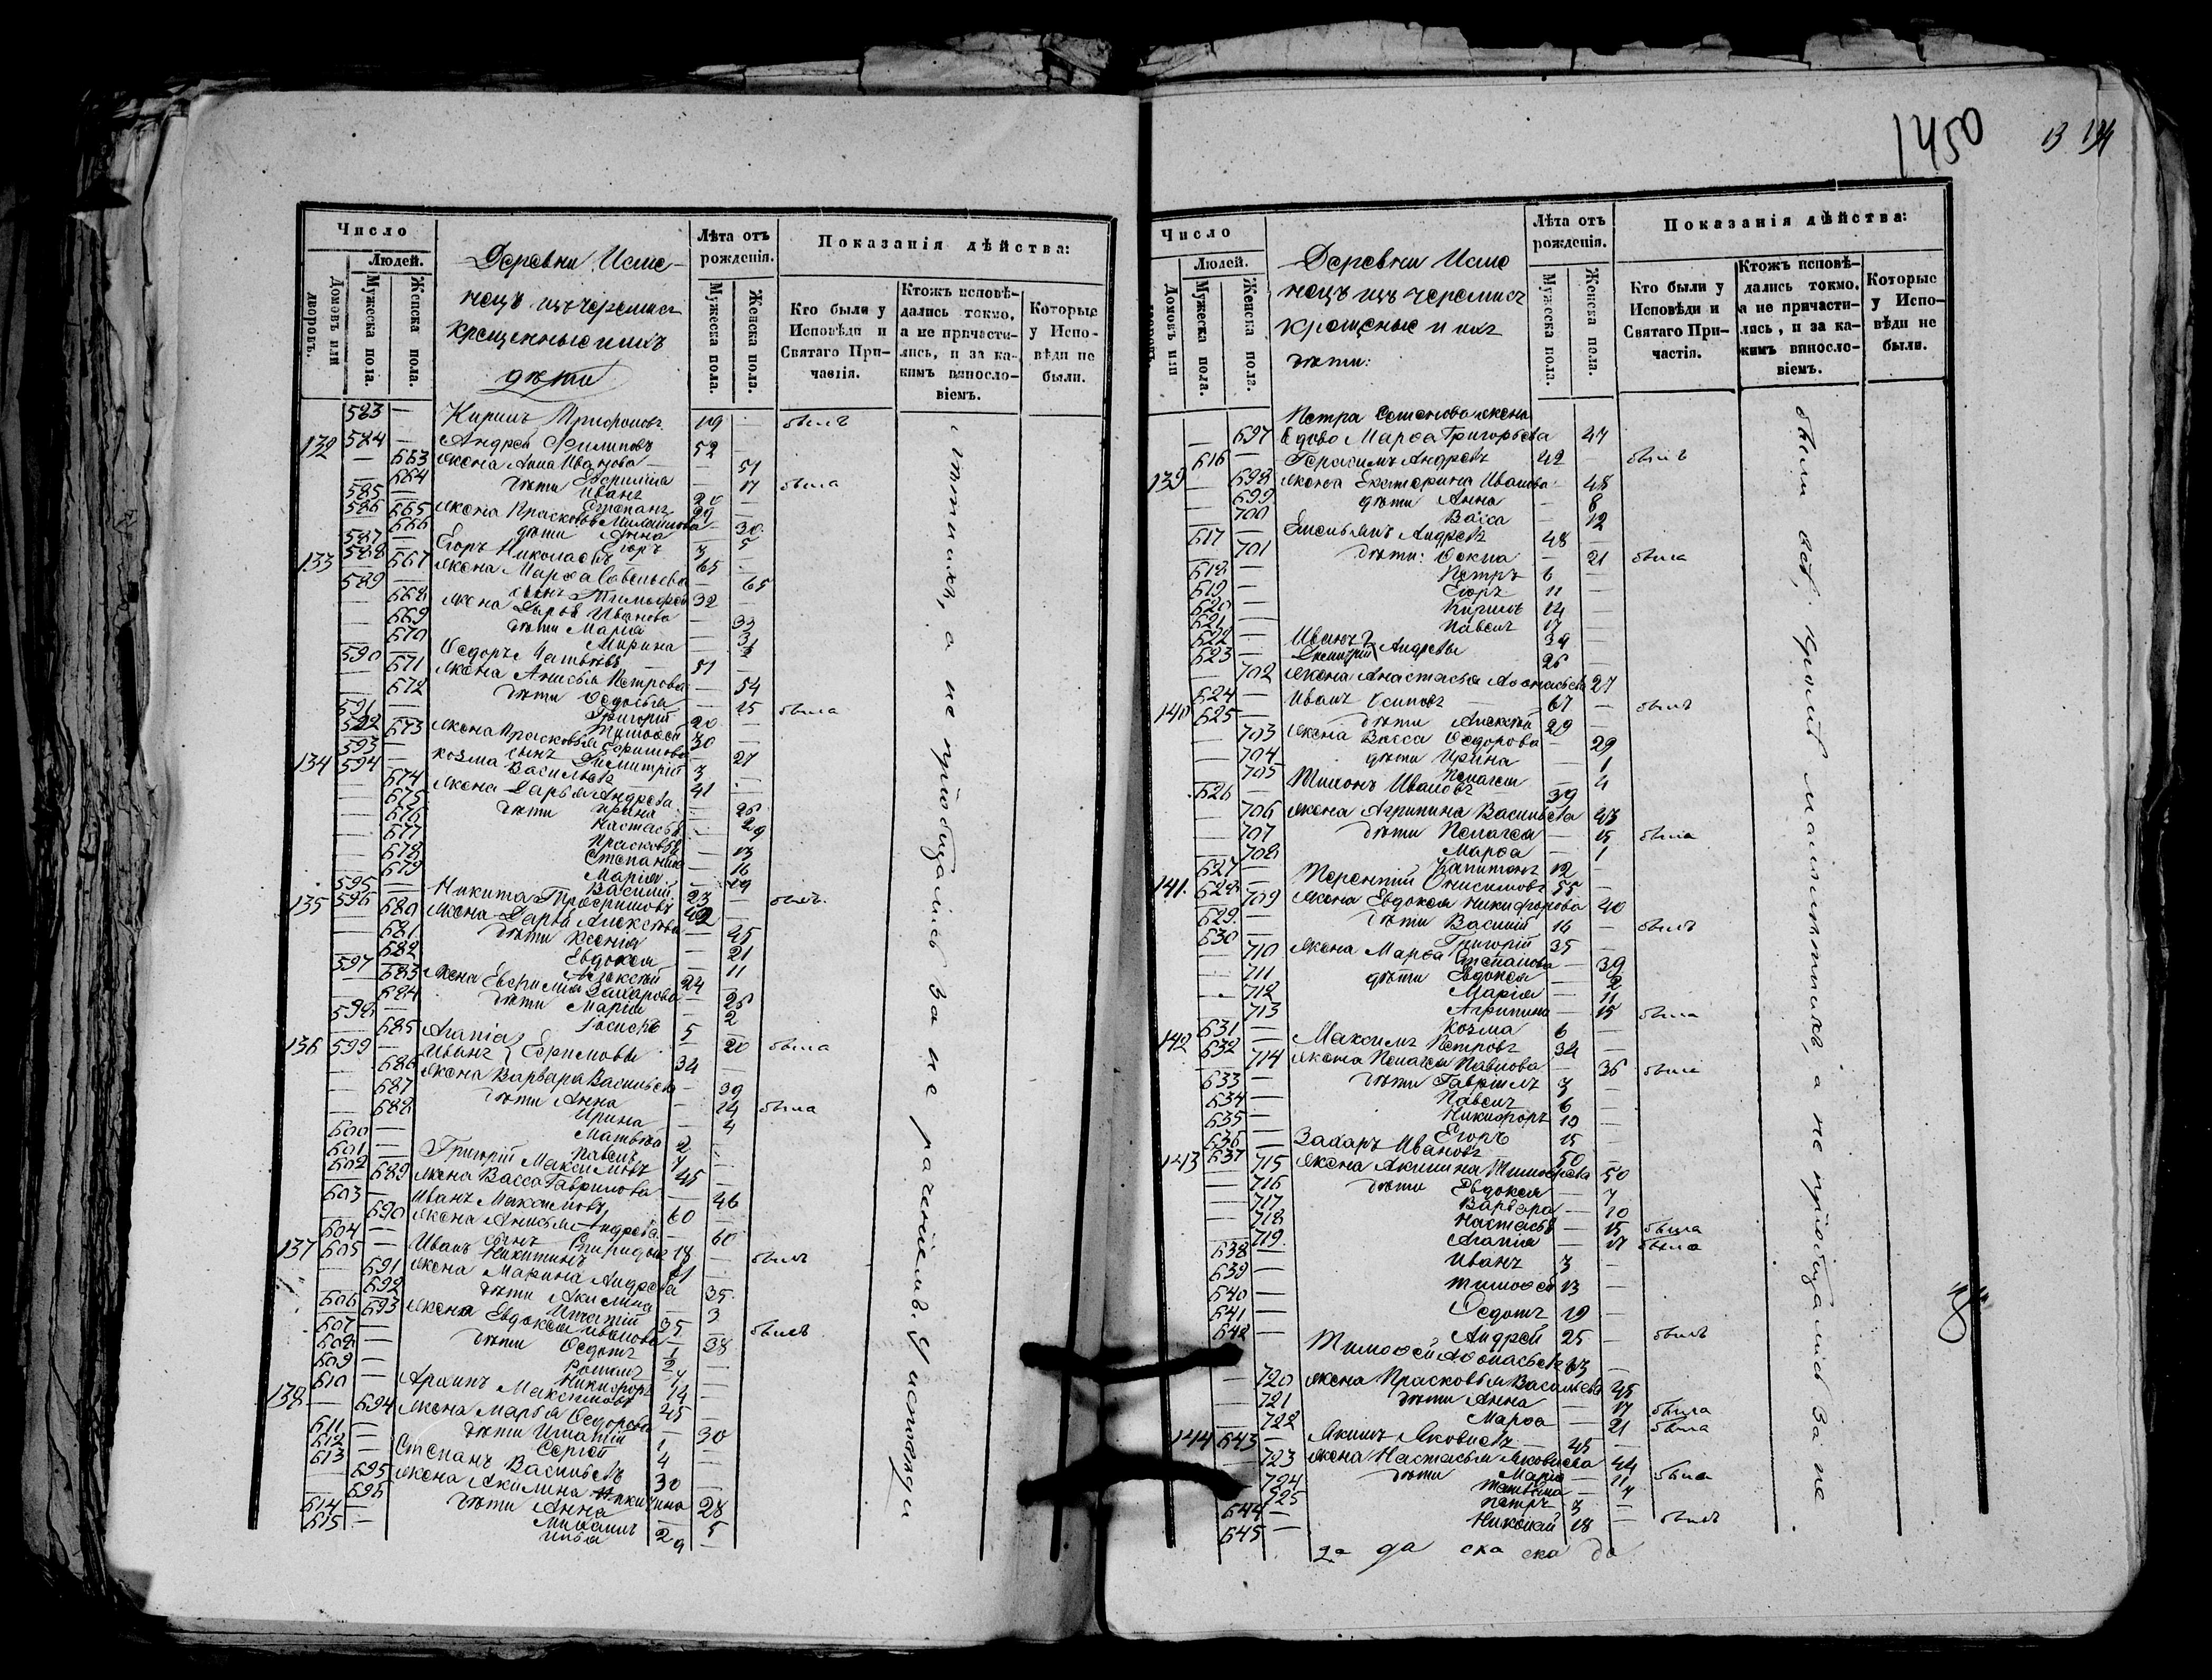 1450
Число
Людей.
Домовъ или дворовъ.
Мужеска пола.
Женска пола.
Деревни Исме-
нецъ изъ черемисъ
крещенные и ихъ
дѣти
Лѣта отъ рожденія.
Мужеска пола.
Женска пола.
Показанія дѣйства:
Кто были у Исповѣди и Святаго При-частія.
Ктожъ исповѣ-дались токмо, а не причасти-лись, и за ка-кимъ винносло-віемъ.
Которые у Испо-вѣди не были.
583 — Кирилъ Трифоновъ 19 — былъ
132 584 — Андрей Филиповъ 52 —
— 663 жена Анна Иванова — 51
— 664 дѣти Евфимiа — 17 была
585 — Иванъ
586 — Степанъ 29
665 жена Прасковья
666 дѣти Анна — 5
587 — Егоръ 3
133 588 — Егоръ Николаевъ 65 —
667 жена Марѳа Савельева — 65
589 — сынъ Тимофей 32 —
668 жена Дарья Иванова — 32
669 дѣти Марiя
670 Марина
590 — Ѳедоръ Матвѣевъ 51
671 жена Анисья Петрова — 54
672 дѣти Ѳедосья — 25 была
591 — Григорiй 20 —
592 — Тимоѳей 30 —
673 жена Прасковья Ефимова — 27
593 — сынъ Димитрiй 3
134 594 — Козма Васильевъ 41
674 жена Дарья Андреева
675 дѣти Ирина
676 Настасья
677 Прасковья — 13
678 Степанида — 16
679 Марiя — 19
595 — Василiй 23 — былъ
135 596 — Никита Трофимовъ 42
680 жена Дарья Алексѣева — 45
681 дѣти Ксенiя — 21
682 Евдокея — 11
597 — Алексѣй 24
683 жена Евфимiя Захарова — 25
684 дѣти Марiя — 2
598 — Iосифъ 5
685 Агапiа — 20 была
136 599 — Иванъ Ефимовы 34
686 жена Варвара Васильева — 39
687 дѣти Анна — 14 была
688 Ирина — 4
600 — Матвѣй 2
601 — Павелъ 7
602 — Григорiй Максимовъ 45 —
689 жена Васса Гаврилова — 46
603 — Иванъ Максимовъ 60 —
690 жена Анисья Андреева — 60
604 — сынъ Спиридонъ 18 — былъ
137 605 — Иванъ Никитинъ
691 жена Марина Андреева — 35
692 дѣти Акилина — 3
606 — Игнатiй 35 былъ
693 жена Евдокея Иванова — 38
607 — дѣти Ѳедотъ 1
608 — Романъ 2
609 — Никифоръ
138 610 — Архипъ Максимовъ 45 —
694 жена Марья Ѳедорова — 30
611 — дѣти Игнатiй 1
612 — Сергей 4
613 — Степанъ Васильевъ 30
695 жена Акилина Никитина — 28
696 дѣти Анна — 5
614 — Михаилъ 2
615 — Илья 9
. а не прiобщались за не раченiемъ у исповѣди
Число
Людей.
Домовъ или дворовъ.
Мужеска пола.
Женска пола.
Деревни Исме
нецъ изъ черемисъ
крещеные и ихъ
дѣти:
Лѣта отъ рожденія.
Мужеска пола.
Женска пола.
Показанія дѣйства:
Кто были у Исповѣди и Святаго При-частія.
Ктожъ исповѣ-дались токмо, а не причасти-лись, и за ка-кимъ винносло-віемъ.
Которые у Испо-вѣди не были.
Петра Семенова жена
— 697 вдова Марѳа Григорьева 47
139 616 — Герасимъ Андреевъ 42 — былъ
— 698 жена Екатерина Иванова 48
699 дѣти Анна — 8
700 Васса — 12
617 — Емельянъ Андреевъ 48 —
701 дѣти: Ѳекла — 21 была
618 — Петръ 6 —
619 — Егоръ 11 —
620 — Кирилъ 14 —
621 — Павелъ 17
622 — Иванъ 39
623 — Димитрiй Андреевы 25
— 702 жена Анастасья Аѳонасьева 27
140 624 — Иванъ Осиповъ 67 — былъ
625 — дѣти Алексѣй 29
703 жена Васса Ѳедорова — 29
704 дѣти Ирина — 1
705 Пелагея — 4
626 — Тихонъ Ивановъ 39
706 жена Агрипина Васильева 43
707 дѣти Пелагея — 15 была
708 Марѳа — 1
627 — Капитонъ 12 —
141. 628 — Терентiй Онисимовъ 55 —
709 жена Евдокея Никифорова 40
629 — дѣти Василiй 16 — былъ
630 — Григорiй 35 —
710 жена Марѳа Степанова — 39
711 дѣти Евдокея — 2
712 Марiя — 11
713 Агрипина — 15 была
631 — Козма 6 —
142 632 — Максимъ Петровъ 34 —
714 жена Пелагея Павлова — 36 была
633 — дѣти Гаврiилъ 3
634 — Павелъ 6
635 — Никифоръ 10
636 — Егоръ 15
143 637 Захаръ Ивановъ 50
715 жена Акилина Тимофеева 50
716 дѣти Евдокея — 7
717 Варвара — 10
718 Настасья — 15 была
719 Агапiя — 17 была
638 — Иванъ 3 —
639 — Тимоѳей 13 —
640 — Ѳедотъ 19 —
641 — Андрей 25 — былъ
642 — Тимоѳей Аѳонасьевъ 63 —
720 жена Прасковья Васильева 45
721 дѣти Анна — 17 была
722 Марѳа — 21 была
144 643 — Якимъ Яковлевъ 45 —
723 жена Настасья Яковлева 44
724 дѣти Марiя — 11 была
725 Татьяна — 7
644 — Петръ 3 —
645 — Николай 18 — былъ
были всѣ, кромѣ малолѣтнихъ, а не прiобщались за не